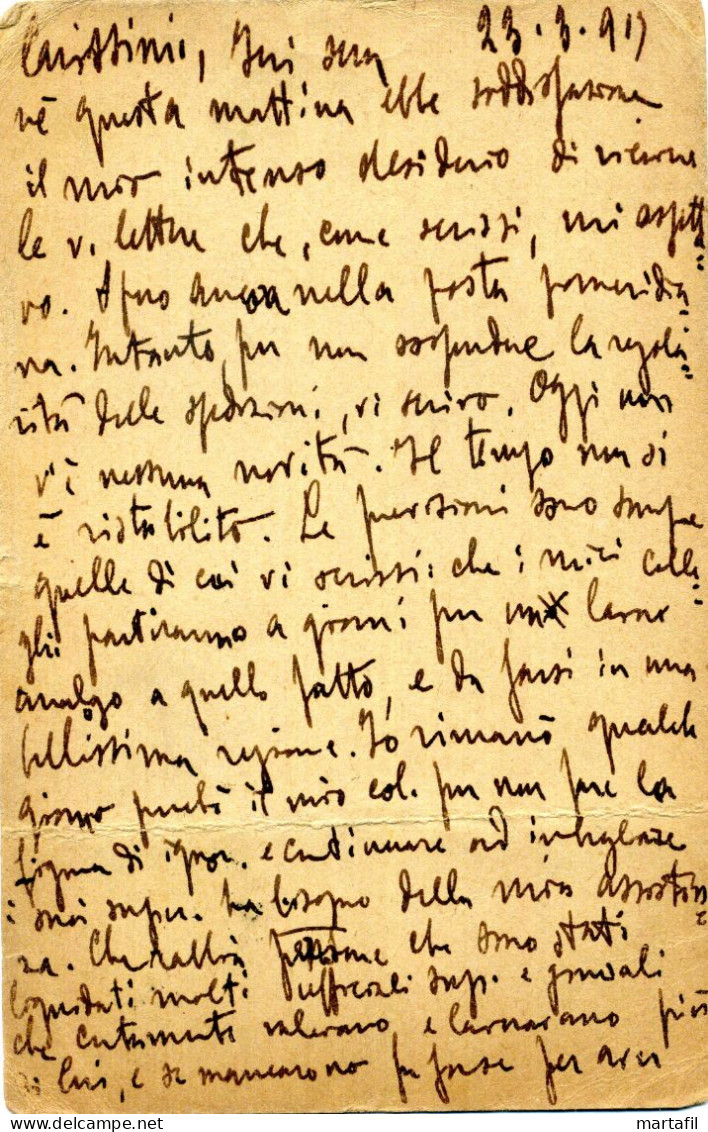 Carissimi, Ieri sera 23.3.917
nè questa mattina ebbe soddisfazione
il mio intenso desiderio di ricevere
le v. lettere che, come scrissi, mi aspetta=
vo. Spero ancora nella posta pomeridia=
na. Intanto, per non sospendere la regola=
rità delle spedizioni, vi scrivo. Oggi non
v'è nessuna novità. Il tempo non si
è ristabilito. Le previsioni sono sempre
quelle di cui vi scrissi: che i miei colle=
ghi partiranno a giorni per un lavoro
analogo a quello fatto, e da farsi in una
bellissima regione. Io rimarrò qualche
giorno perchè il mio col. per non fare la
figura di ignor. e continuare ad
i suoi super. ha bisogno della mia assisten=
za. Che rabbia pensare che sono stati
liquidati molti ufficiali sup. e generali
che certamente valevano e lavoravano più
di lui, e se mancarono fu forse per aver